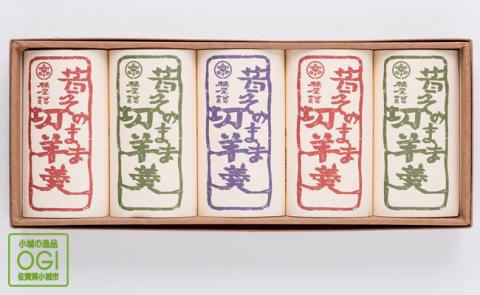 昔々のまま
切羊羹
昔々のまま
切羊羹
昔々のまま
切羊羹
昔々のまま
切羊羹
昔々のまま
切羊羹
小城の逸品
OGI
佐賀県小城市